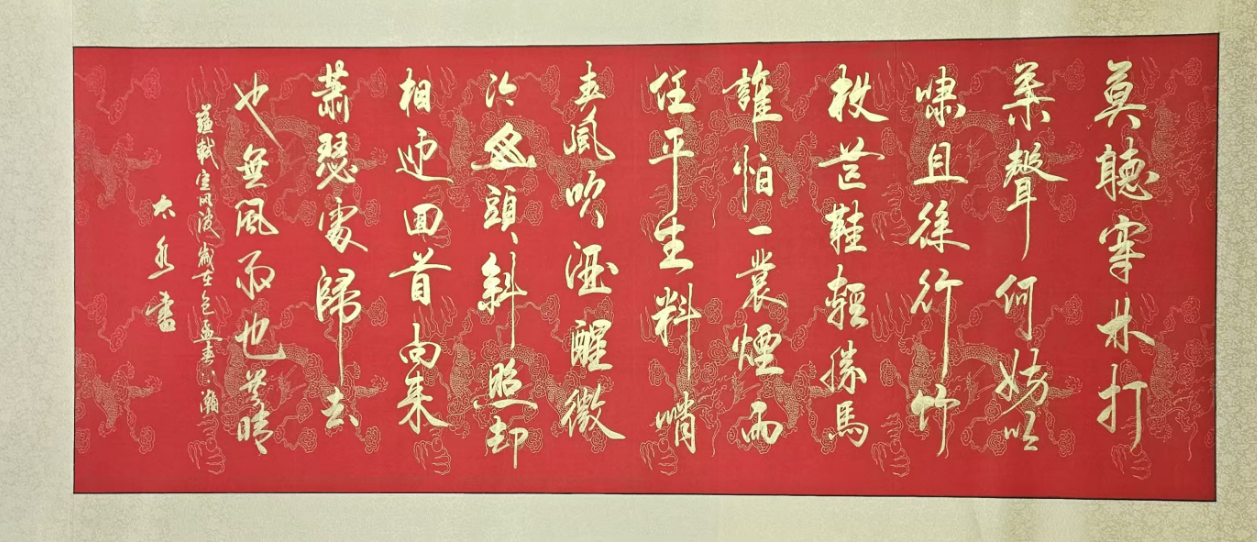 莫聽穿林打
葉聲何妨吟
嘯且徐行竹
杖芒鞋輕勝馬
誰怕一蓑煙雨
任平生料峭
春風吹酒醒微
冷山頭斜照却
相迎回首向来
蕭瑟處歸去
也無風雨也無晴
蘇軾定風波歲在乙孟春
太 書